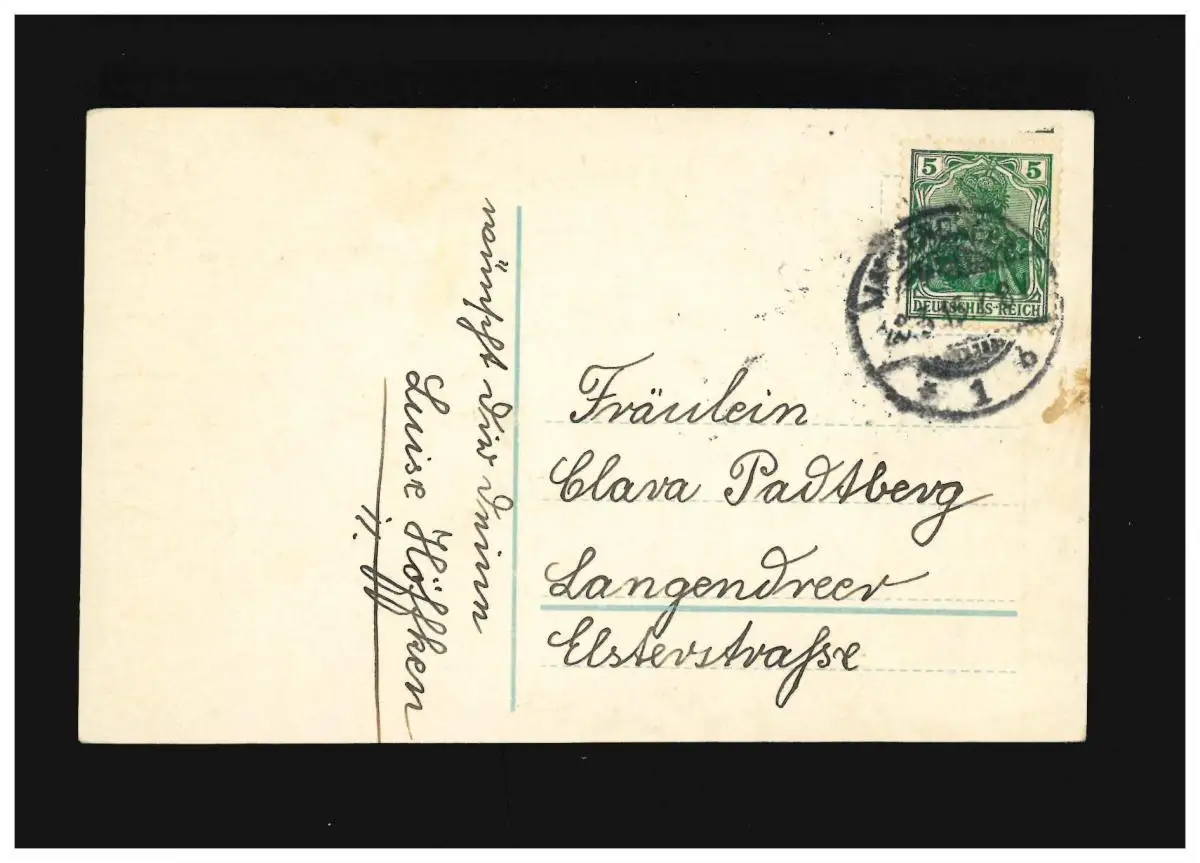 wünscht Dir Deine
Luise Höffken
5 5
DEUTSCHES REICH
* 1 b
Fräulein
Clara Padtberg
Langendreer
Elsterstraße